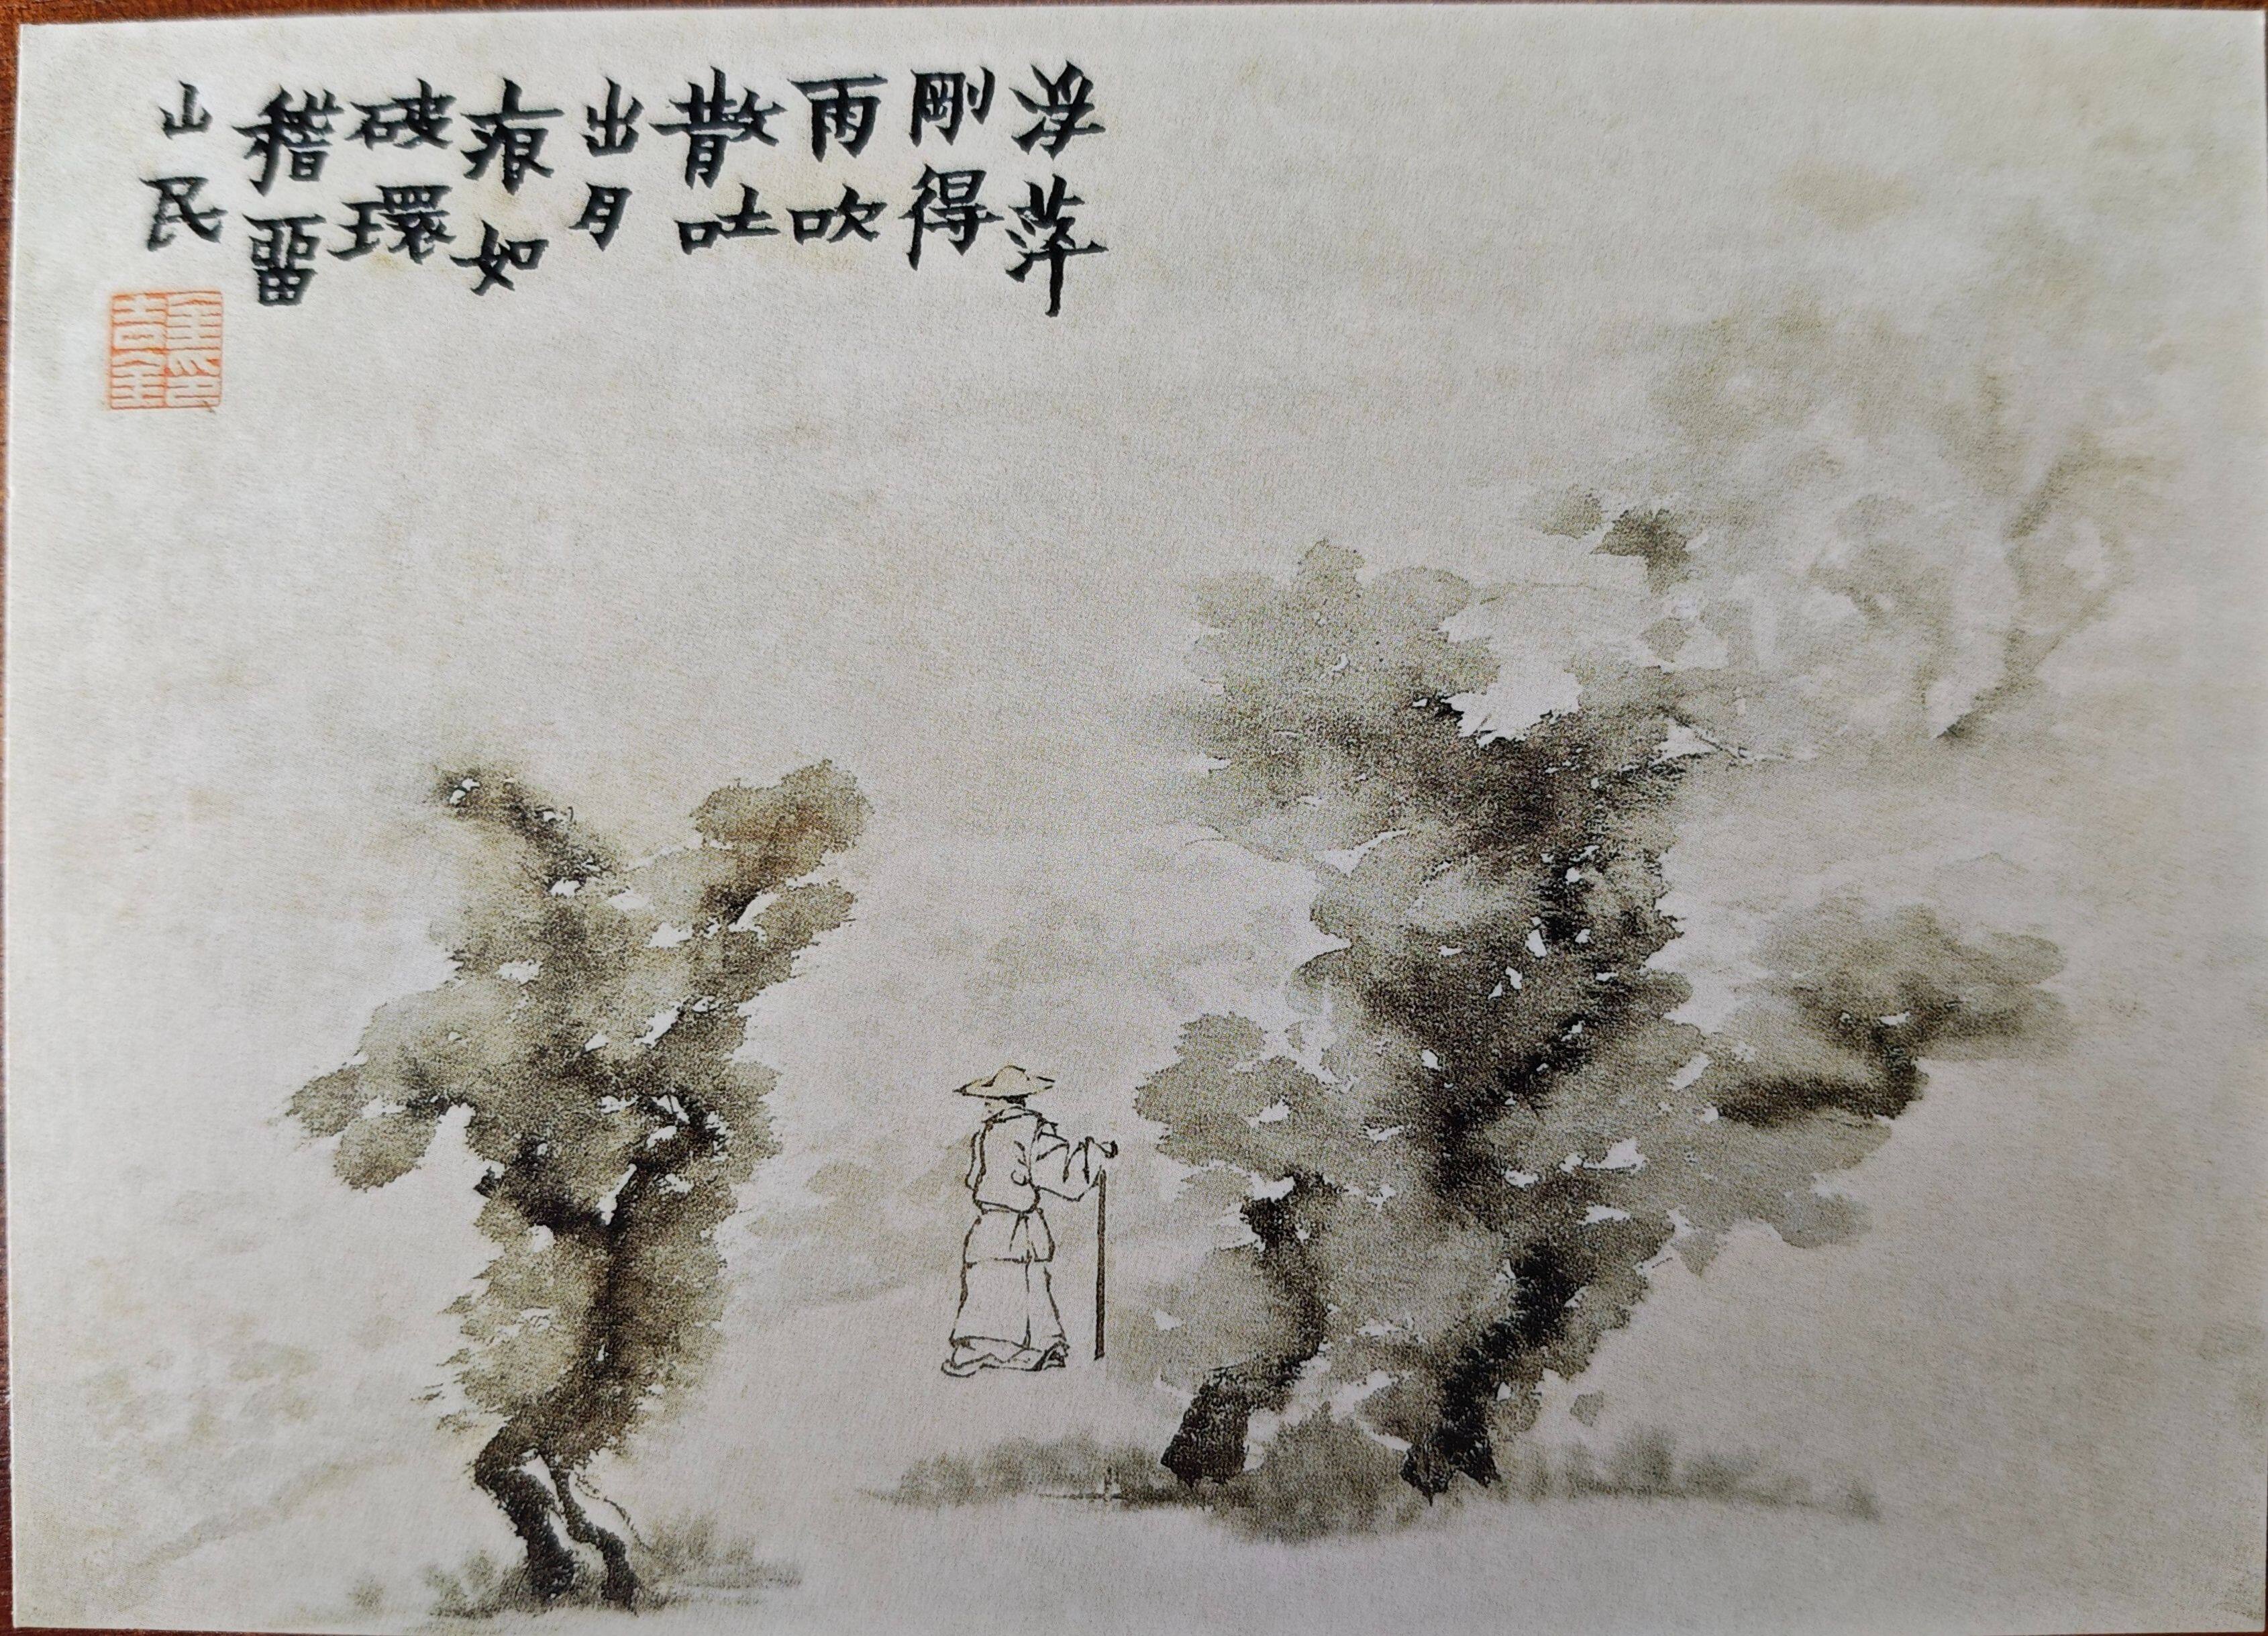 浮萍
剛得
雨吹
散吐
出月
痕如
破環
稽畱
山民
金吉金印